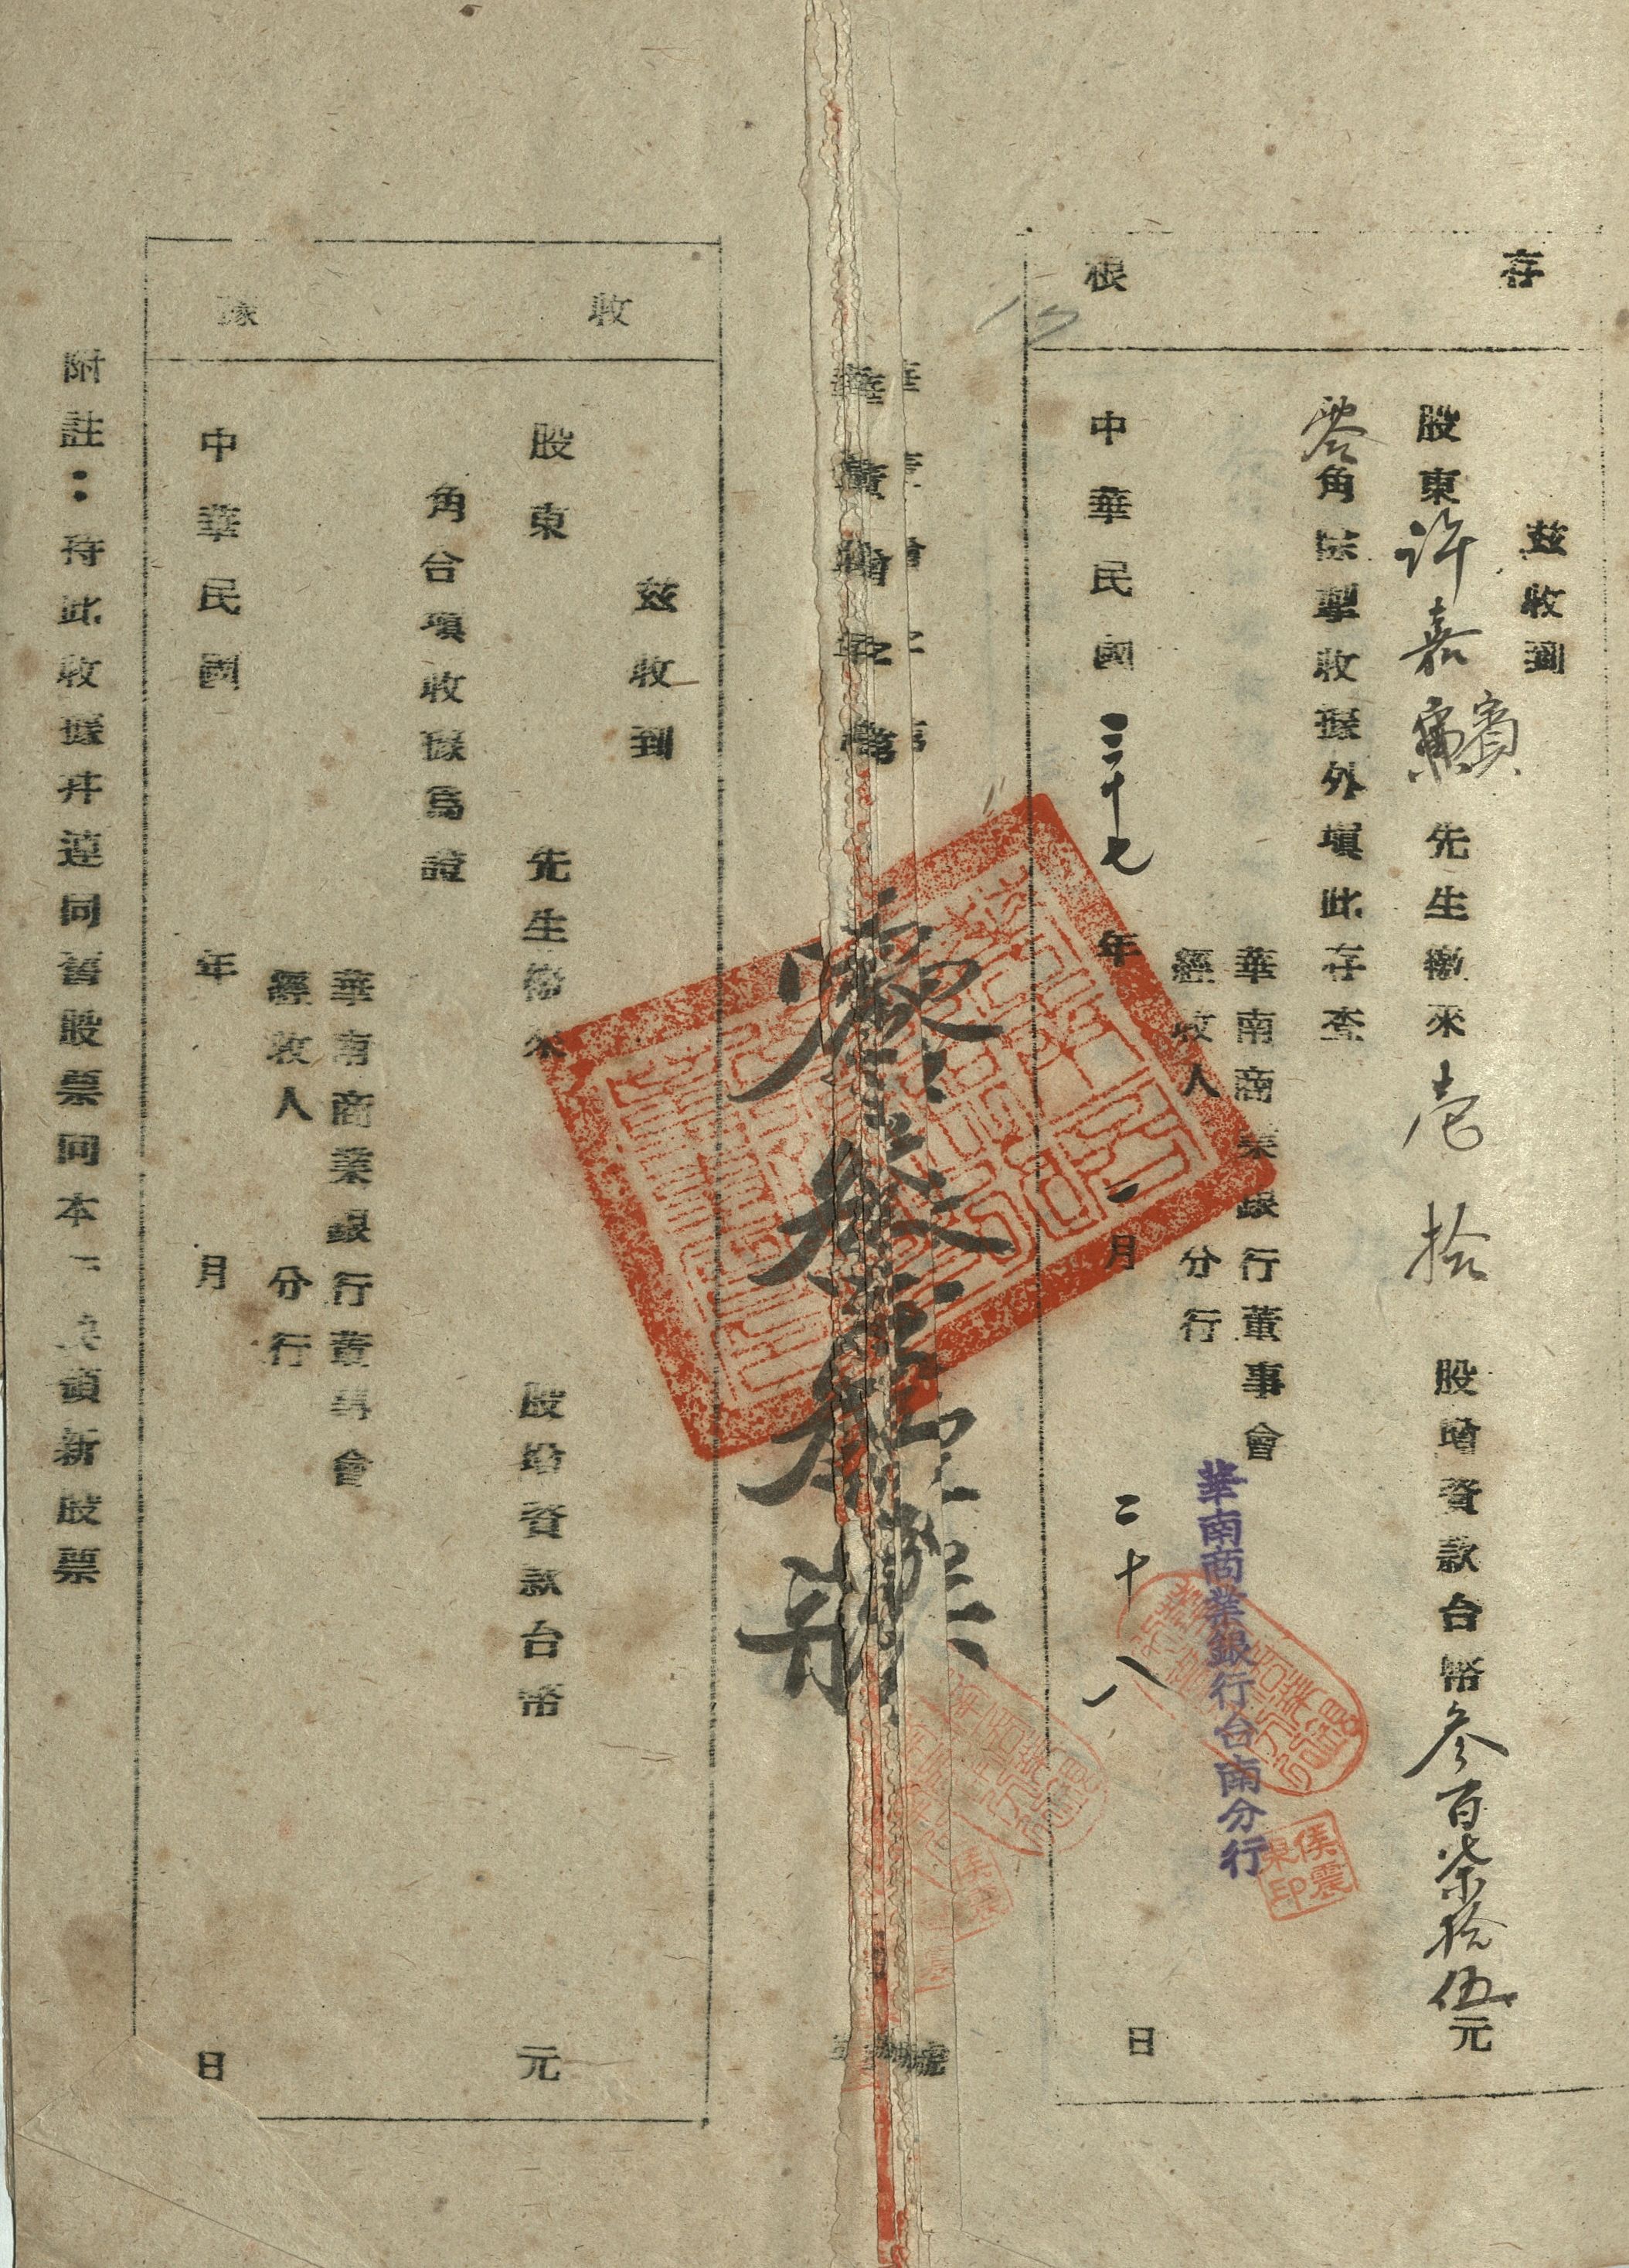 存根
茲收到
股東許嘉 先生繳來壹拾股增資款台幣參百柒拾伍元
零角除掣收據外填此存查
華南商業銀行董事會
經收人 分行
華南商業銀行台南分行
侯震東印
中華民國三十七年一月二十八日
收據
茲收到
股東 先生繳來 股增資款台幣 元
角合填收據為證
華南商業銀行董事會
經收人 分行
中華民國 年 月 日
附註：待此收據并連同舊股票向本行換領新股票